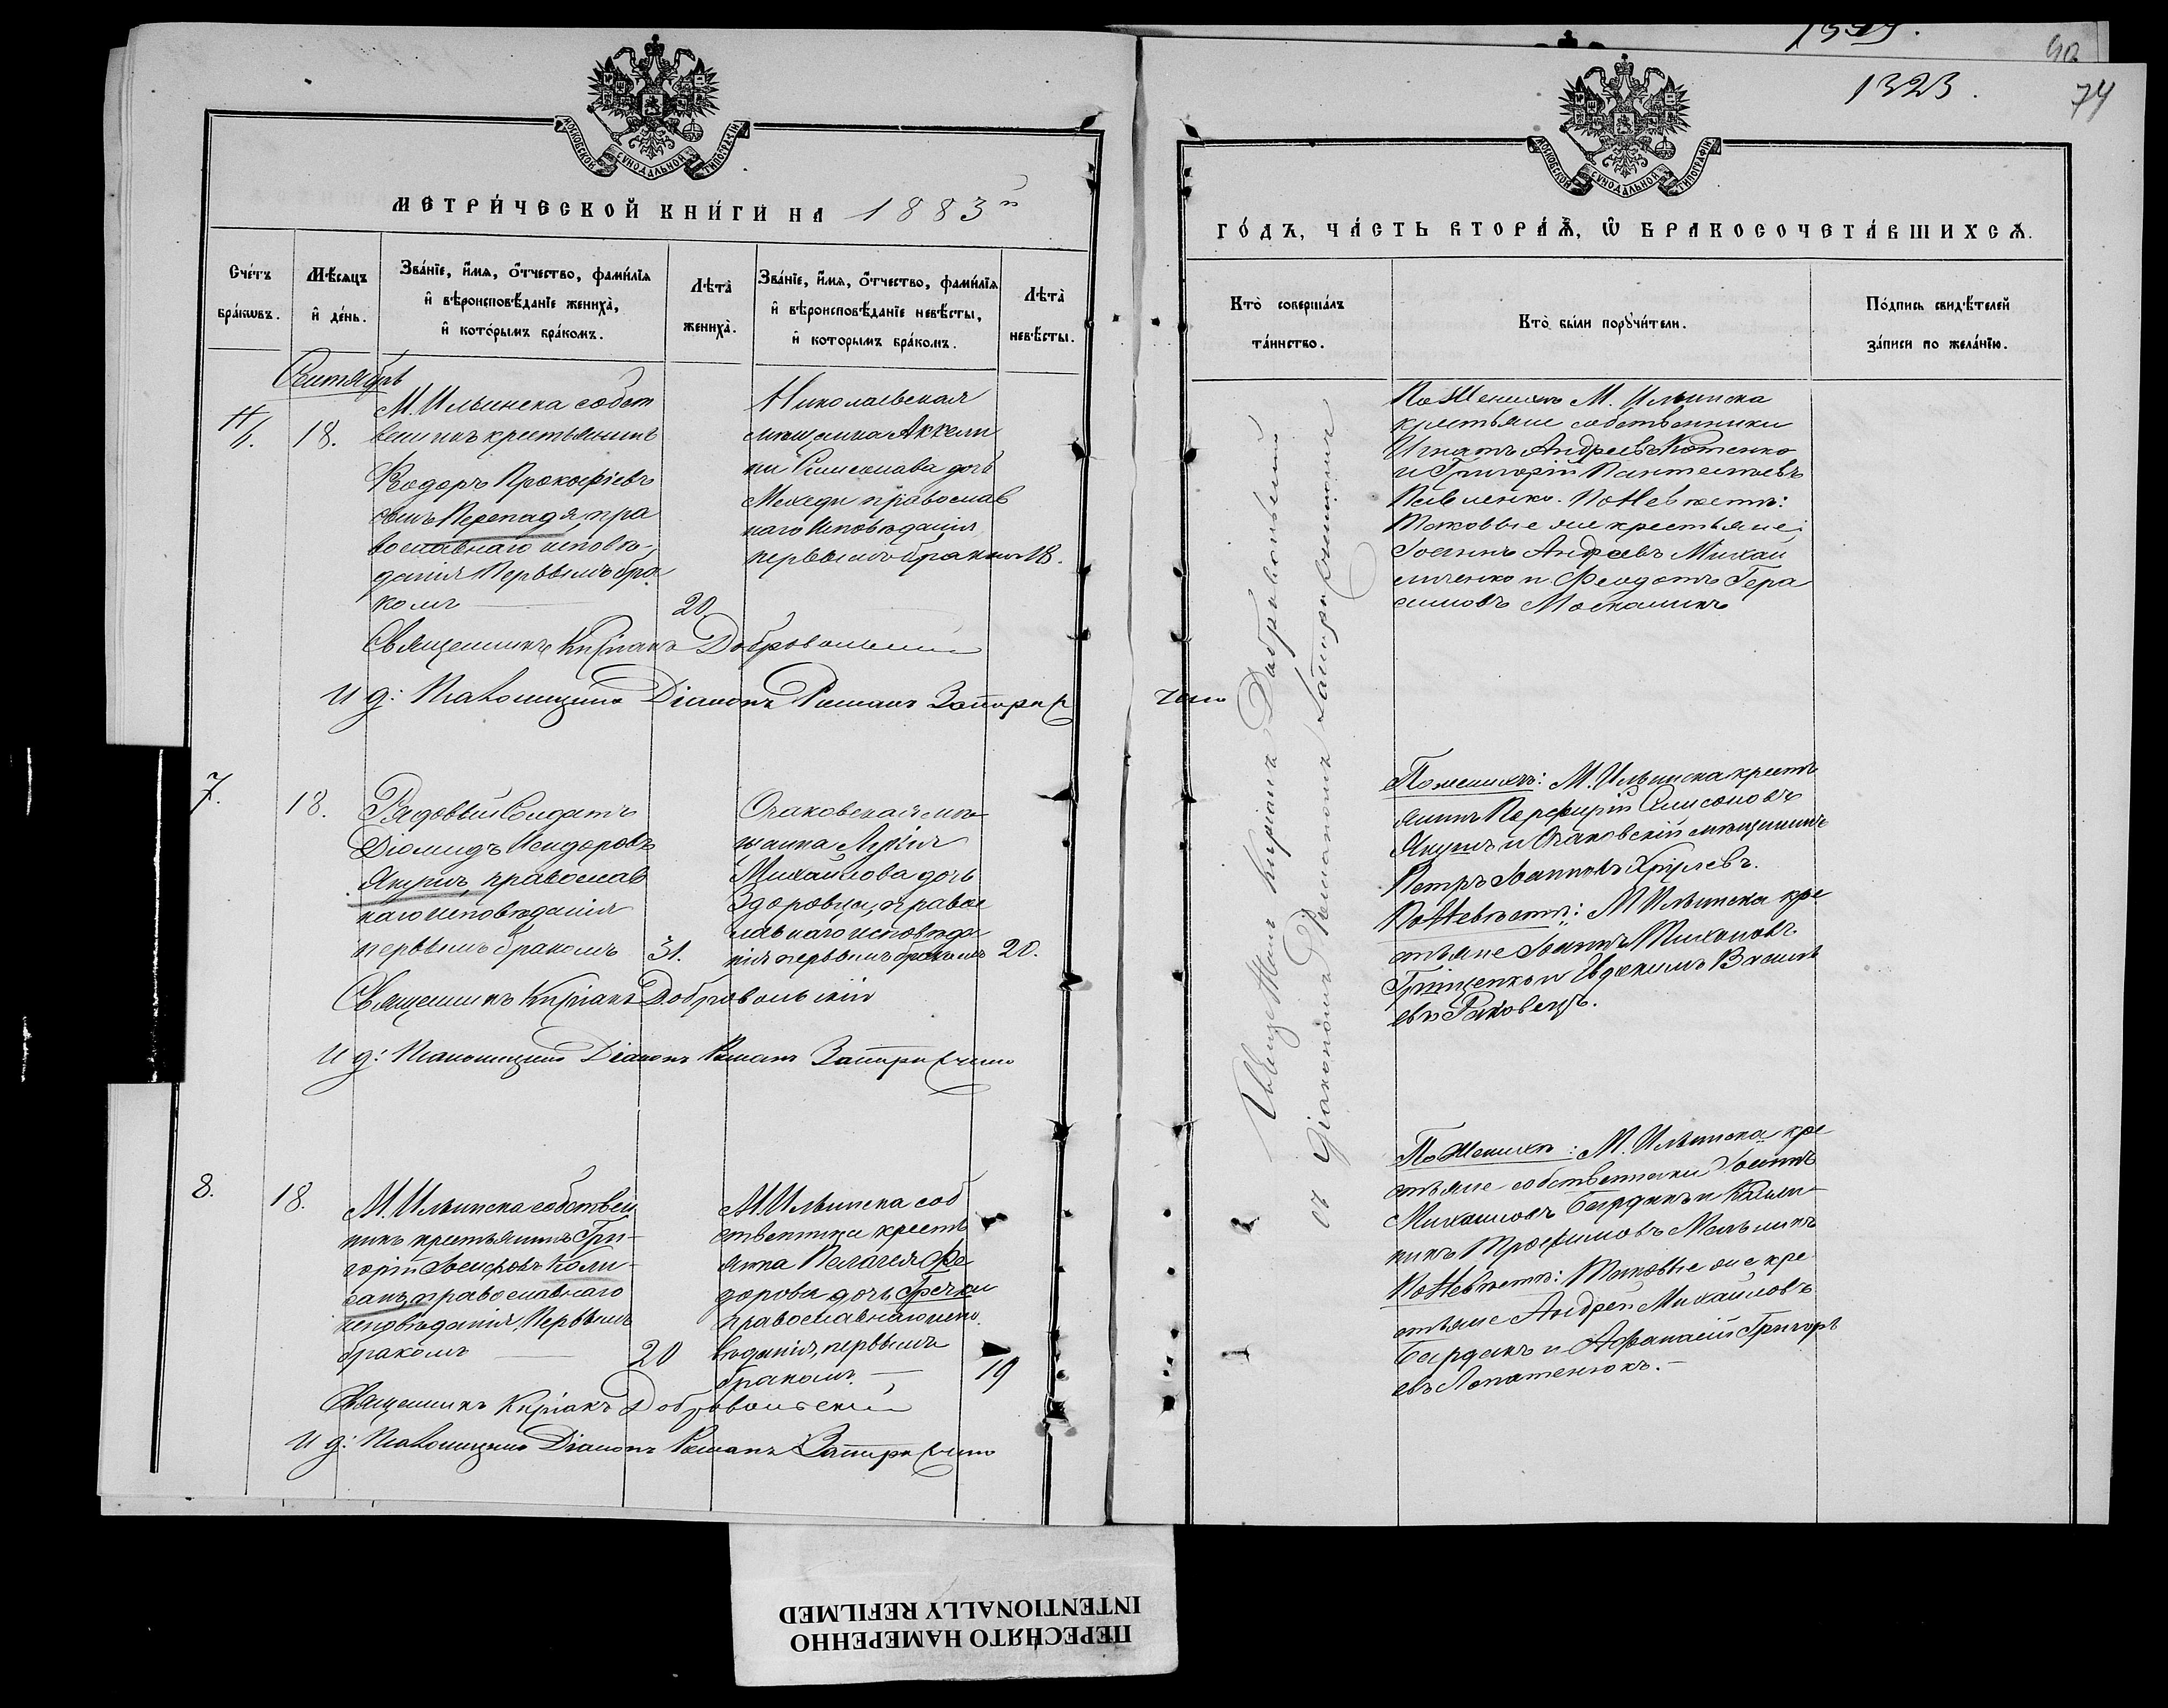 1323.
74
МОСКОВСКОЙ СѴНОДАЛЬНОЙ ТИПОГРАФІИ
МЕТРИ́ЧЕСКОЙ КНИ́ГИ НА 1883й
Сче́тъ бра́кѡвъ.
Мѣ́сяцъ и҆ де́нь.
Зва́нїе, и҆́мѧ, ѻ҆́тчество, фами́лїѧ
и҆ вѣроисповѣ́данїе жениха̀,
и҆ кото́рымъ бра́комъ.
Лѣта̀ жениха̀.
Зва́нїе, и҆́мѧ, ѻ҆́тчество, фами́лїѧ
и҆ вѣроисповѣ́данїе невѣ́сты,
и҆ которымъ бра́комъ.
Лѣта̀ невѣ́сты.
Сентябрь
18.
М. Ильинска собст
венникъ крестьянинъ
Ѳеодоръ Прокофіевъ
сынъ Перепадя, пра
вославнаго исповѣ-
данія Первымъ бра
комъ
20
Николаевская
мѣщанка
Симеонова дочь
православ
наго исповѣданія
первымъ бракомъ 18.
Священникъ Киріакъ Добровольскій
И д: Псаломщика Діаконъ Романъ
7.
18.
Рядовый Солдатъ
Діомидъ Исидоровъ
Якушъ, православ
наго исповѣданія
первымъ бракомъ
31.
Очаковская мѣ
щанка Лукія
Михайлова дочь
Здоровцы, право
славнаго исповѣда
нія первымъ бракомъ
20.
Священникъ Киріакъ Добровольскій
И д: Псаломщика Діаконъ Романъ
8.
18.
М. Ильинска собствен
никъ крестьянинъ Гри-
горій Іосифовъ Коли-
санъ, православнаго
исповѣданія, Первымъ
бракомъ
20
М. Ильинска соб
ственника кресть
янка Пелагея Ѳе
дорова дочь Гречки
православнаго испо
вѣданія, первымъ
бракомъ.
19
Священникъ Киріакъ Добровольскій
И д: Псаломщика Діаконъ Романъ
МОСКОВСКОЙ СѴНОДАЛЬНОЙ ТИПОГРАФІИ
ГО́ДЪ, ЧА́СТЬ ВТОРА́Ѧ, Ѡ҆ БРАКОСОЧЕТА́ВШИХСѦ.
Кто̀ соверша́лъ та́инство.
Кто̀ бы́ли порꙋчи́тели.
По́дпись свидѣ́телей за́писи по жела́нїю.
Священникъ Киріакъ Добровольскій
съ Діакономъ Романомъ
По Женихѣ М. Ильинска
крестьяне собственники
Игнатъ Андреевъ Котенко
и Григорій Пантелеевъ
Павленко. По Невѣстѣ:
Таковые же крестьяне
Іоаннъ Андреевъ Михай
личенко и Феодотъ Гера
симовъ Москаликъ
По женихѣ: М. Ильинска кресть
янинъ Порфирій Симеоновъ
Якушъ и Очаковскій мѣщанинъ
Петръ Іоанновъ
По Невѣстѣ: М Ильинска кре
стьяне Іоаннъ Тихоновъ
Грищенко и Евдокимъ Василь
евъ Раковецъ.
По Женихѣ: М. Ильинска кре
стьяне собственники Іоаннъ
Михаиловъ Бардакъ и Калин-
никъ Трофимовъ Мельникъ
По Невѣстѣ: Таковые же кре
стьяне Андрей Михайловъ
Бардакъ и Афанасій Григорь
евъ Лопатенюкъ.
ПЕРЕСНЯТО НАМЕРЕННО
INTENTIONALLY REFILMED